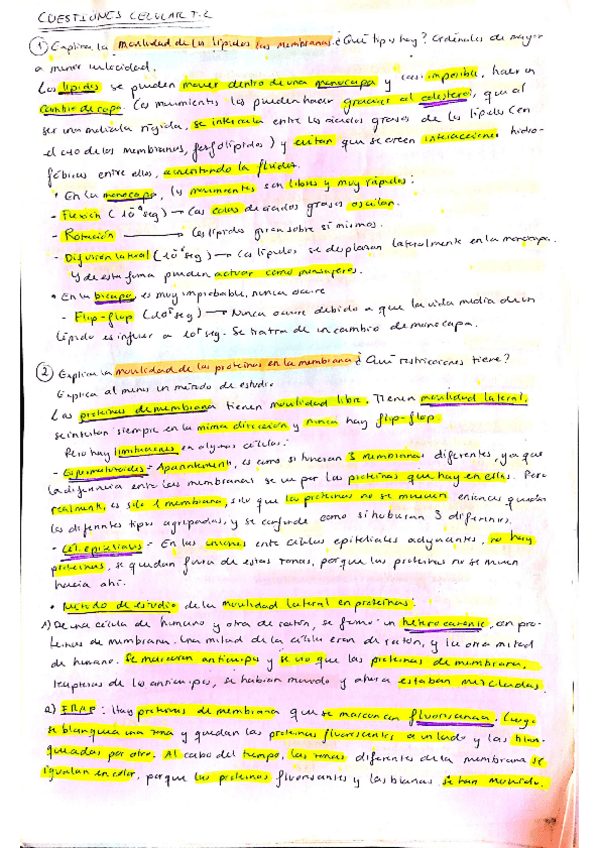 CUESTIONES CELULAR T-2
① Explica la movilidad de los lípidos las membranas. ¿Qué tipos hay? Ordénalos de mayor
a menor velocidad.
Los lípidos se pueden mover dentro de una monocapa y casi imposible, hacer un
cambio de capa. Los movimientos los pueden hacer gracias al colesterol, que al
ser una molécula rígida, se intercala entre los ácidos grasos de los lípidos (en
el caso de las membranas, fosfolípidos) y evitan que se creen interacciones hidro-
fóbicas entre ellos, aumentando la fluidez.
• En la monocapa, los movimientos son libres y muy rápidos:
- Flexión ( seg) → Las colas de ácidos grasos oscilan.
- Rotación → Los lípidos giran sobre sí mismos.
- Difusión lateral ( seg) → Los lípidos se desplazan lateralmente en la monocapa.
Y de esta forma pueden actuar como mensajeros.
• En la bicapa, es muy improbable, nunca ocurre
- Flip-flop ( seg) → Nunca ocurre debido a que la vida media de un
lípido es inferior a seg. Se trata de un cambio de monocapa.
② Explica la movilidad de las proteínas en la membrana ¿Qué restricciones tiene?
Explica al menos un método de estudio
Las proteínas de membrana tienen movilidad libre. Tienen movilidad lateral.
se insertan siempre en la misma dirección y nunca hay flip-flop
Pero hay limitaciones en algunas células:
- Espermatozoides - Aparentement, es como si tuvieran 3 membranas diferentes, ya que
la diferencia entre las membranas se ve por las proteínas que hay en ellas. Pero
realmente, es solo 1 membrana, solo que las proteínas no se mueven entonces quedan
los diferentes tipos agrupados, y se confunde como si hubieran 3 diferentes.
- Cél. epiteliales - En las uniones entre células epiteliales adyacentes, no hay
proteínas, se quedan fuera de estas zonas, porque las proteínas no se mueven
hacia ahí.
• Método de estudio de la movilidad lateral en proteínas:
1) De una célula de humano y otra de ratón, se formó un heterocarionte, con pro-
teínas de membrana. Una mitad de la célula eran de ratón, y la otra mitad
de humano. Se marcaron anticuerpos y se vio que las proteínas de membrana,
de los anticuerpos, se habían movido y ahora estaban mezcladas.
2) FRAP: Hay proteínas de membrana que se marcan con fluorescencia. Luego
se blanquea una zona y quedan las proteínas fluorescentes a un lado y las blan-
queadas por otro. Al cabo del tiempo, las zonas diferentes de la membrana se
igualan en color, porque las proteínas fluorescentes y las blancas se han movido.